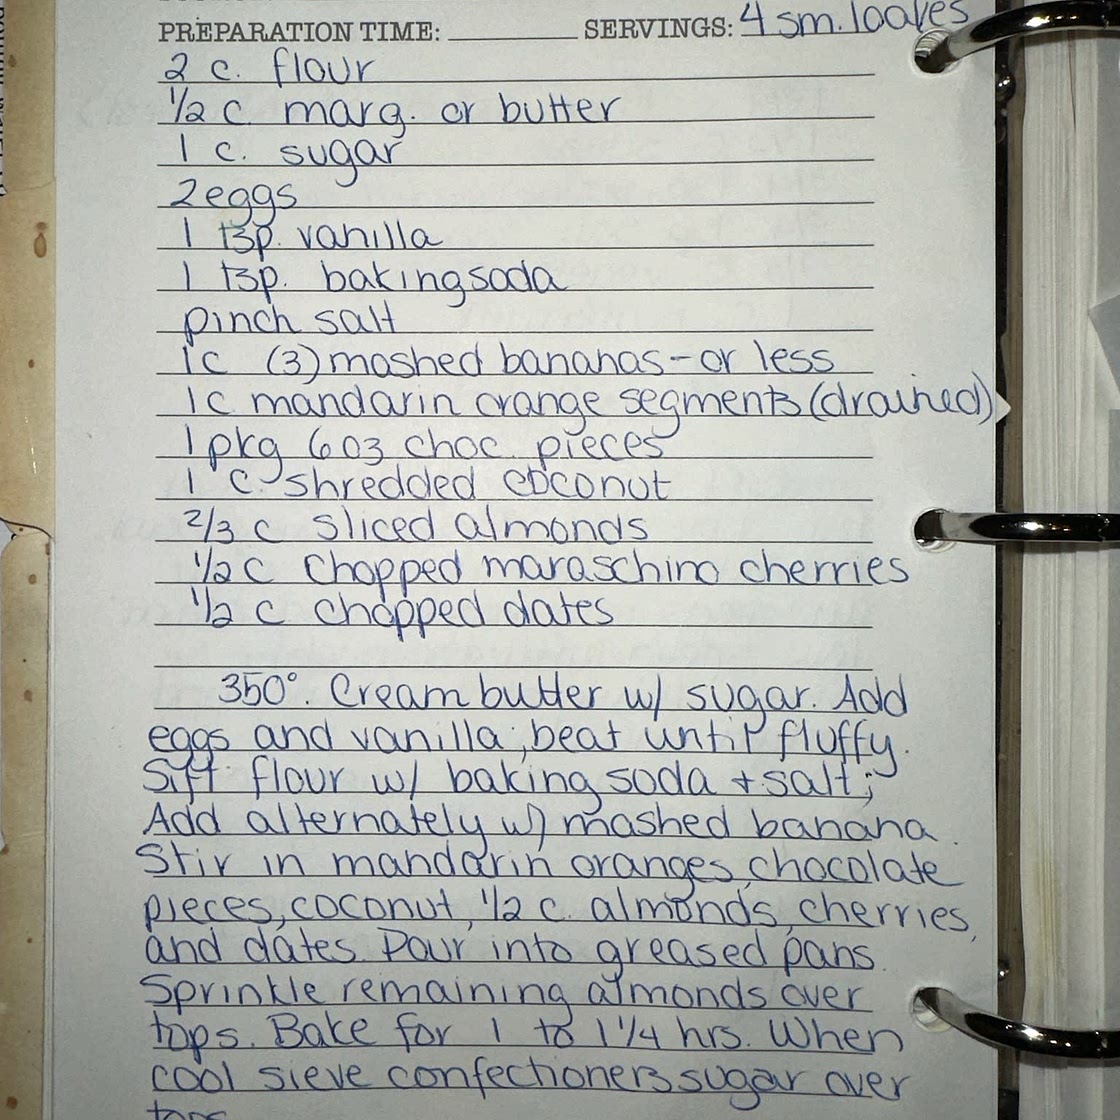 PREPARATION TIME: SERVINGS: 4 sm. loaves
2 c. flour
1/2 c. marg. or butter
1 c. sugar
2 eggs
1 tsp. vanilla
1 tsp. baking soda
pinch salt
1c (3) mashed bananas - or less
1c mandarin orange segments (drained)
1 pkg 6 oz choc pieces
1 c. shredded coconut
2/3 c sliced almonds
1/2 c chopped maraschino cherries
1/2 c chopped dates
350°. Cream butter w/ sugar. Add
eggs and vanilla; beat until fluffy.
Sift flour w/ baking soda + salt;
Add alternately w/ mashed banana.
Stir in mandarin oranges, chocolate
pieces, coconut, 1/2 c. almonds, cherries,
and dates. Pour into greased pans.
Sprinkle remaining almonds over
tops. Bake for 1 to 1 1/4 hrs. When
cool sieve confectioners sugar over
tops